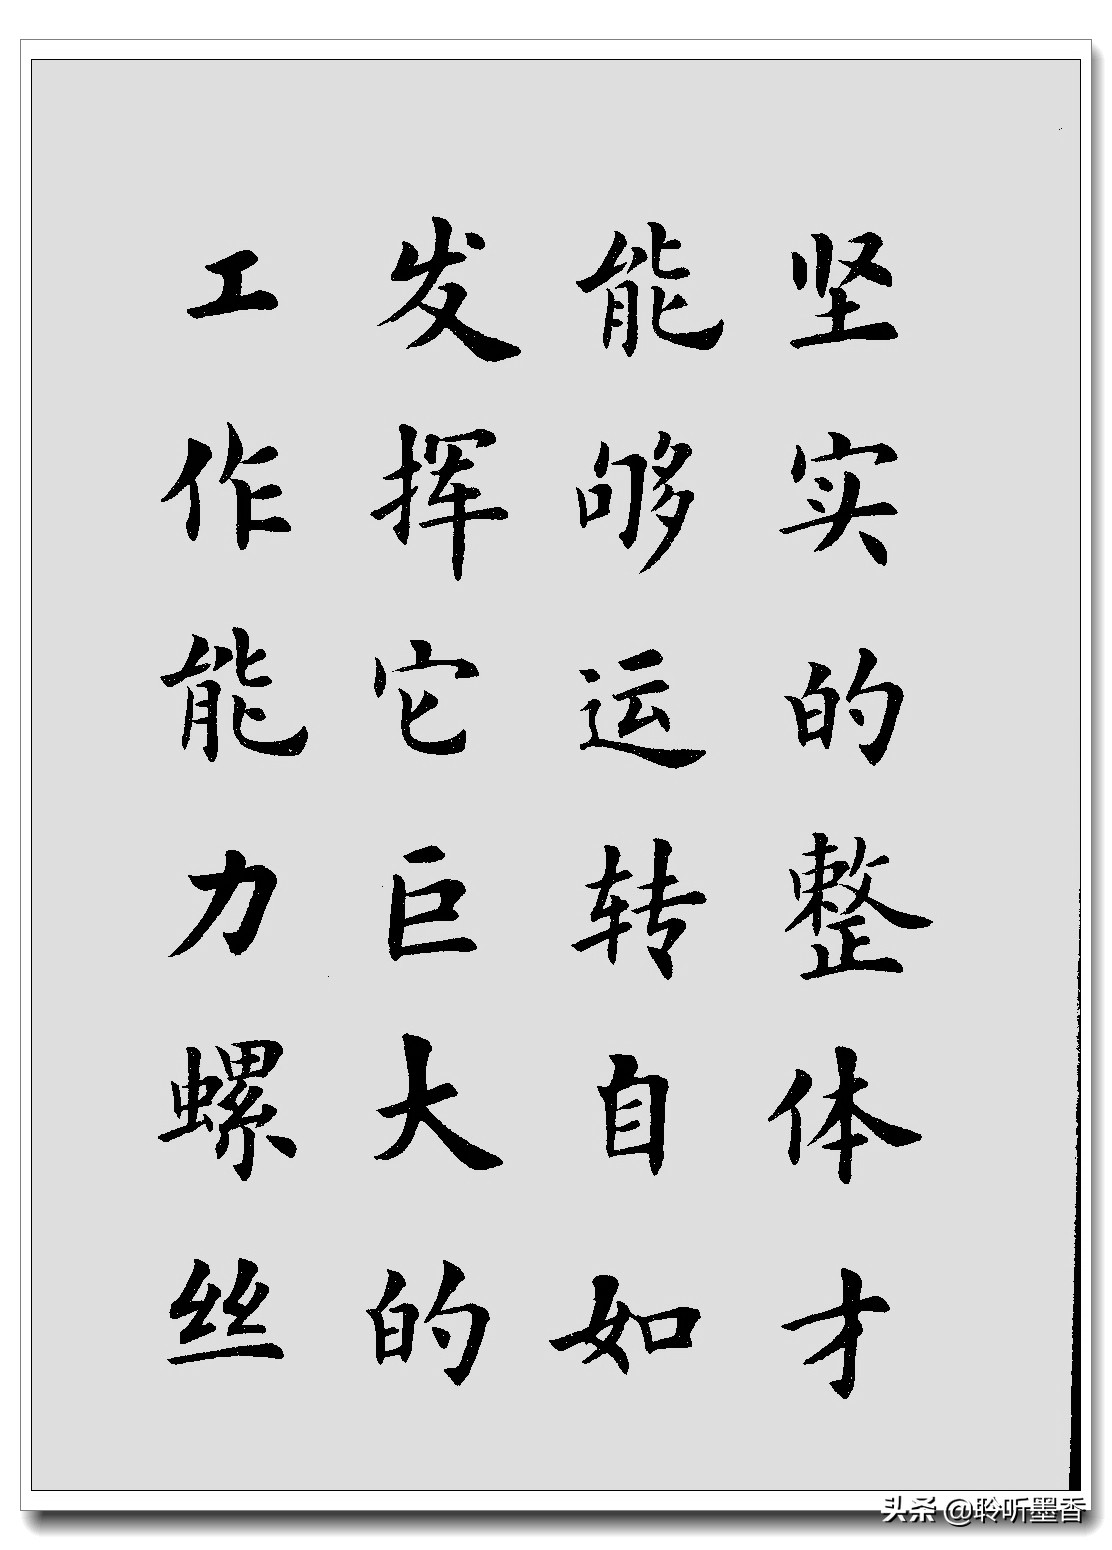 坚实的整体才
能够运转自如
发挥它巨大的
工作能力螺丝
头条 @聆听墨香